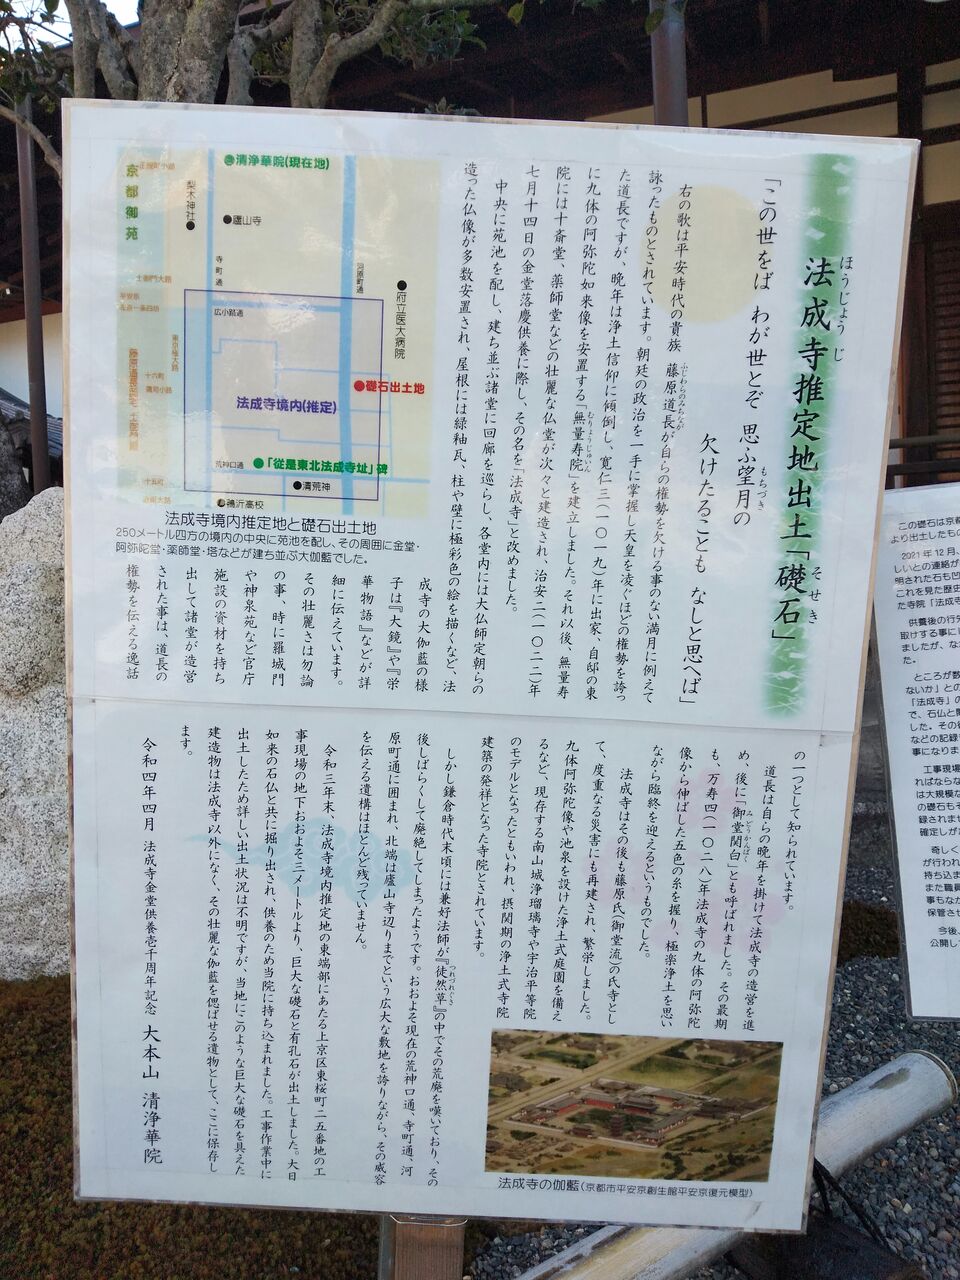 法成寺推定地出土「礎石」
ほうじょうじ
そせき
「この世をば わが世とぞ 思ふ望月の
もちづき
欠けたることも なしと思へば」
右の歌は平安時代の貴族 藤原道長が自らの権勢を欠ける事のない満月に例えて
ふじわらのみちなが
詠ったものとされています。朝廷の政治を一手に掌握し天皇を凌ぐほどの権勢を誇っ
た道長ですが、晩年は浄土信仰に傾倒し、寛仁三(一〇一九)年に出家、自邸の東
に九体の阿弥陀如来像を安置する「無量寿院」を建立しました。それ以後、無量寿
むりょうじゅいん
院には十斎堂、薬師堂などの壮麗な仏堂が次々と建造され、治安二(一〇二二)年
七月十四日の金堂落慶供養に際し、その名を「法成寺」と改めました。
中央に苑池を配し、建ち並ぶ諸堂に回廊を巡らし、各堂内には大仏師定朝らの
造った仏像が多数安置され、屋根には緑釉瓦、柱や壁に極彩色の絵を描くなど、法
成寺の大伽藍の様
子は『大鏡』や『栄
華物語』などが詳
細に伝えています。
その壮麗さは勿論
の事、時に羅城門
や神泉苑など官庁
施設の資材を持ち
出して諸堂が造営
された事は、道長の
権勢を伝える逸話
京都御苑
正親町小路
清浄華院(現在地)
梨木神社
廬山寺
寺町通
河原町通
府立医大病院
土御門大路
平安京
左京一条四坊
広小路通
東京極大路
礎石出土地
十六町
法成寺境内(推定)
荒神口通
「従是東北法成寺址」碑
十五町
清荒神
近衛大路
鴨沂高校
法成寺境内推定地と礎石出土地
250メートル四方の境内の中央に苑池を配し、その周囲に金堂・
阿弥陀堂・薬師堂・塔などが建ち並ぶ大伽藍でした。
の一つとして知られています。
道長は自らの晩年を掛けて法成寺の造営を進
め、後に「御堂関白」とも呼ばれました。その最期
みどうかんぱく
も、万寿四(一〇二八)年法成寺の九体の阿弥陀
像から伸ばした五色の糸を握り、極楽浄土を思い
ながら臨終を迎えるというものでした。
法成寺はその後も藤原氏(御堂流)の氏寺とし
て、度重なる災害にも再建され、繁栄しました。
九体阿弥陀像や池泉を設けた浄土式庭園を備え
るなど、現存する南山城浄瑠璃寺や宇治平等院
のモデルとなったともいわれ、摂関期の浄土式寺院
建築の発祥となった寺院とされています。
しかし鎌倉時代末頃には兼好法師が『徒然草』の中でその荒廃を嘆いており、その
つれづれぐさ
後しばらくして廃絶してしまったようです。おおよそ現在の荒神口通、寺町通、河
原町通に囲まれ、北端は廬山寺辺りまでという広大な敷地を誇りながら、その威容
を伝える遺構はほとんど残っていません。
令和三年末、法成寺境内推定地の東端部にあたる上京区東桜町二五番地の工
事現場の地下おおよそ三メートルより、巨大な礎石と有孔石が出土しました。大日
如来の石仏と共に掘り出され、供養のため当院に持ち込まれました。工事作業中に
出土したため詳しい出土状況は不明ですが、当地にこのような巨大な礎石を具えた
建造物は法成寺以外になく、その壮麗な伽藍を偲ばせる遺物として、ここに保存し
ます。
令和四年四月 法成寺金堂供養壱千周年記念 大本山 清浄華院
法成寺の伽藍(京都市平安京創生館平安京復元模型)
この礎石は京都
より出土したもの
2021年12月、
しいとの連絡が
明された石も凹
これを見た歴史
た寺院「法成寺
供養後の行先
取けする事に
ましたが、なか
た。
ところが数
ないか」との
「法成寺」の
で、石仏と
した。その後
などの記録
事になりま
工事現場
ればならな
は大規模な
の礎石もそ
録されませ
確定しが
奇しく
が行われ
持ち込ま
また職員
事もなか
保管させ
今後、
公開し